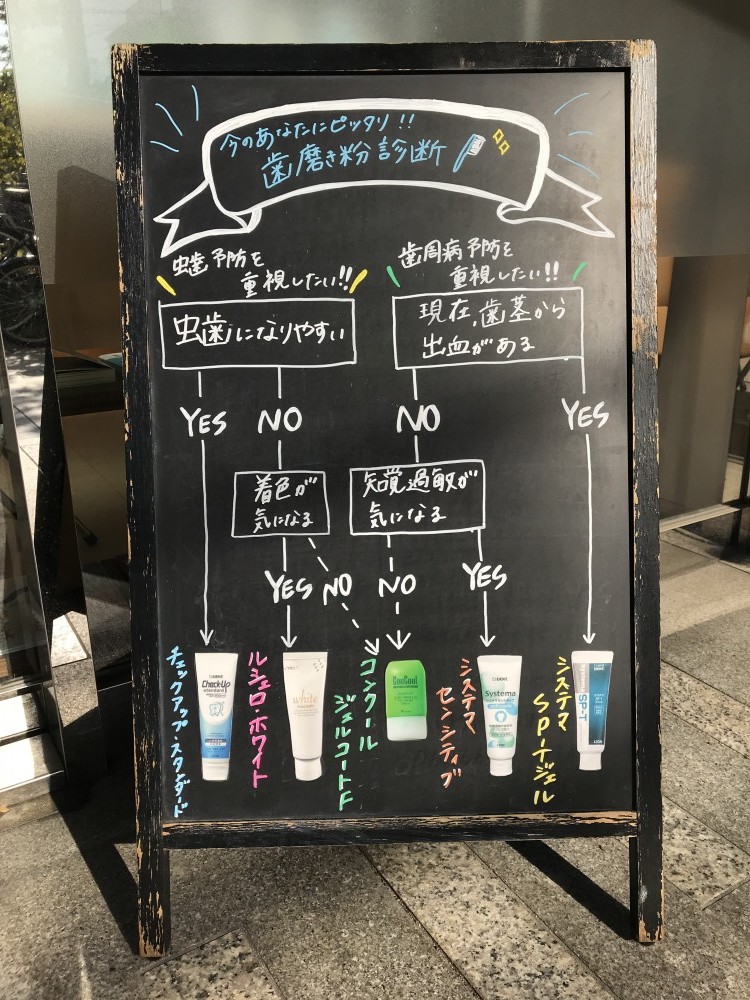 今のあなたにピッタリ!!
歯磨き粉診断
虫歯予防を
重視したい!!
歯周病予防を
重視したい!!
虫歯になりやすい
現在、歯茎から
出血がある
YES
NO
NO
YES
着色が
気になる
知覚過敏が
気になる
YES
NO
NO
YES
チェックアップ・スタンダード
ルシェロ・ホワイト
コンクール
ジェルコートF
システマ
センシティブ
システマ
SP-Tジェル
Check-Up
standard
white
ConCool
Systema
SP-T
LION